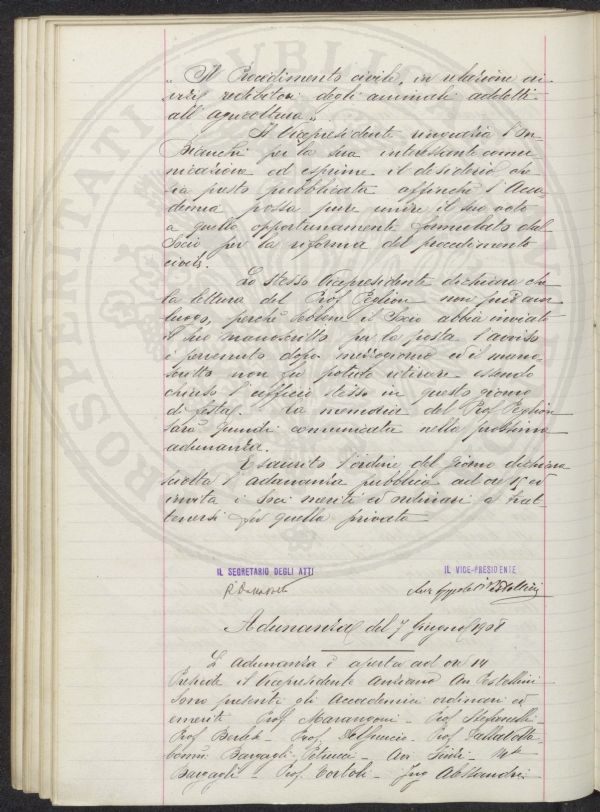 "Il Procedimento civile, in relazione ai
vizi redibitori degli animali addetti
all'agricoltura".
Il Vicepresidente ringrazia l'In
Bianchi per la sua interessante comu
nicazione ed esprime il desiderio che
sia presto pubblicata affinchè l'Acca
demia possa pure unire il suo voto
a quello opportunamente formulato dal
Socio per la riforma del procedimento
civile.
Lo stesso Vicepresidente dichiara che
la lettura del Prof. Peglion non può aver
luogo, perchè sebbene il Socio abbia inviato
il suo manoscritto per la posta l'avviso
è pervenuto dopo mezzogiorno ed il mano
scritto non fu potuto ritirare essendo
chiuso l'ufficio stesso in questo giorno
di festa. La memoria del Prof. Peglion
sarà quindi comunicata nella prossima
adunanza.
Esaurito l'ordine del giorno dichiara
sciolta l'adunanza pubblica ad ore 15 ed
invita i Soci emeriti ed ordinari a trat
tenersi per quella privata
IL SEGRETARIO DEGLI ATTI
IL VICE-PRESIDENTE
Adunanza del 7 Giugno 1908
L'adunanza è aperta ad ore 14
Presiede il Vicepresidente anziano Avv. Pestellini
sono presenti gli Accademici ordinari ed
emeriti Prof. Marangoni - Prof. Stefanelli
Prof. - Prof. Del Guercio - Prof.
Bargagli Petrucci - Avv. -
Bargagli - Prof. Bortoli - Ing. Alessandri
PROSPERITATI PVBLICAE